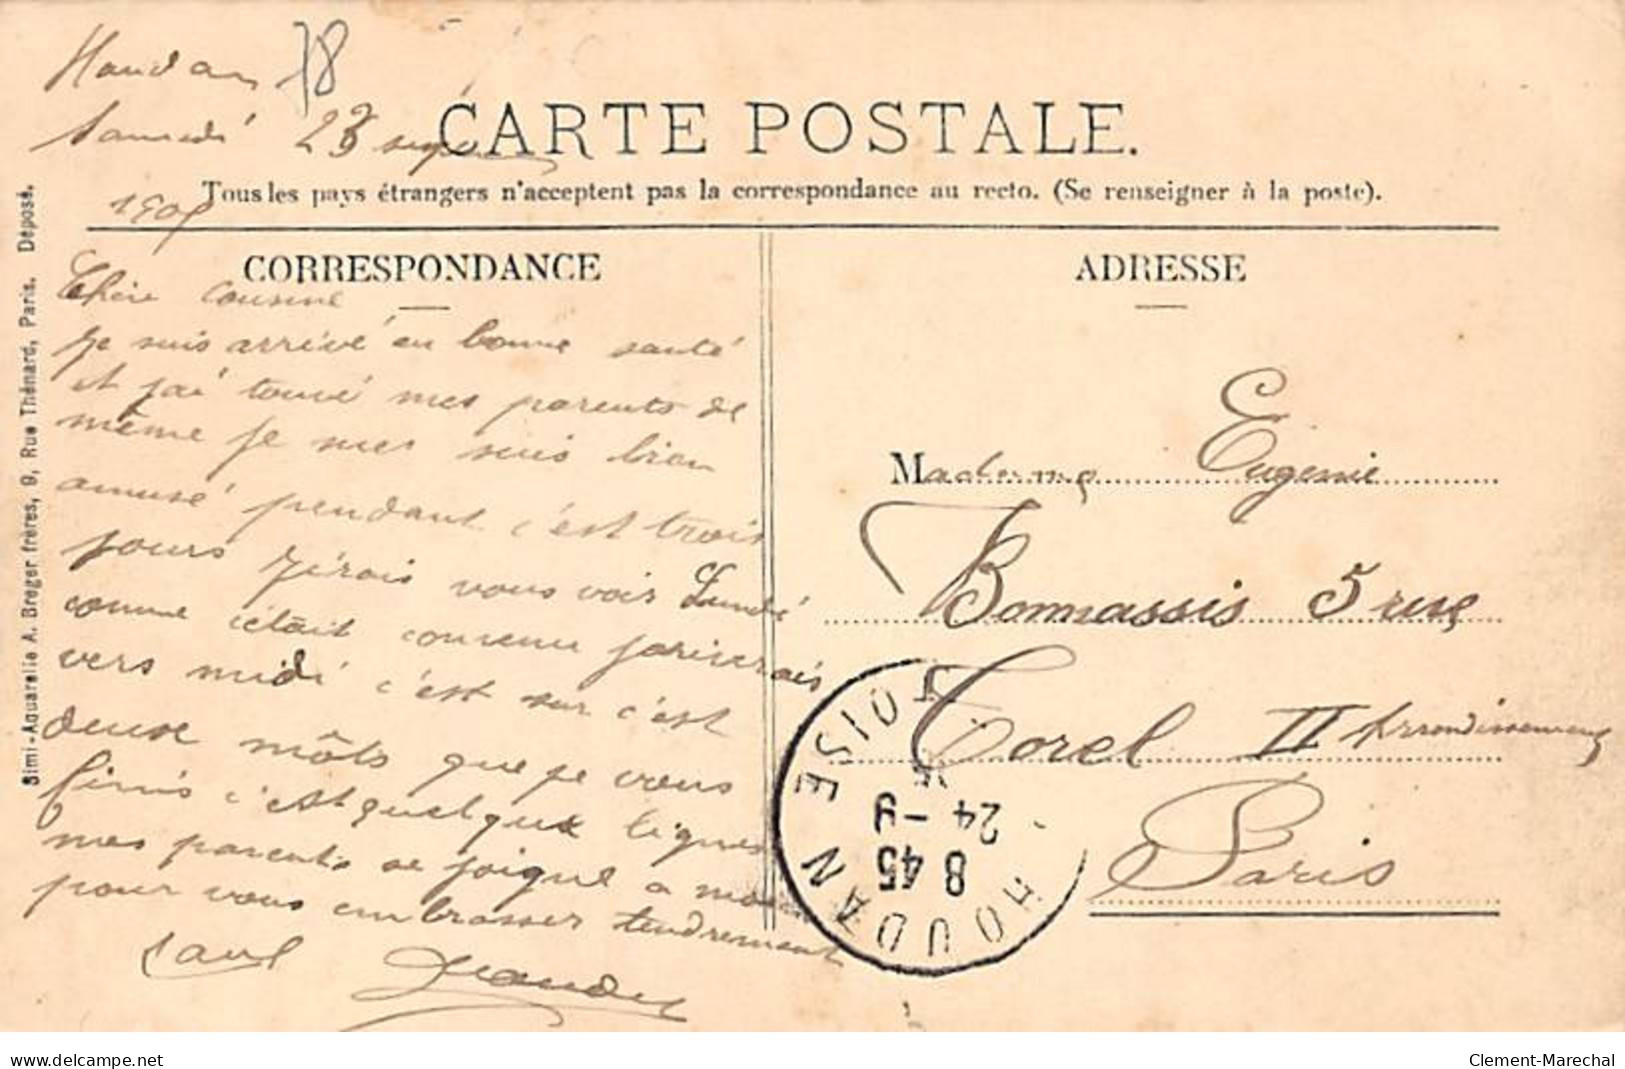 Houdan 78
Samedi 23
CARTE POSTALE.
Tous les pays étrangers n'acceptent pas la correspondance au recto. (Se renseigner à la poste).
CORRESPONDANCE
Chère cousine
je suis arrivé en bonne santé
et j'ai trouvé mes parents de
même je mes suis bien
amusé pendant c'est trois
jours j'irais vous voir Lundi
comme c'était convenu
vers midi c'est sur c'est
deux môts que je vous
finis c'est quelque lignes
mes parents se joigne a moi
pour vous embrasser tendrement
Paul
ADRESSE
Madame Eugenie
Bonnassis 5 rue
Torel II Arrondissement
Paris
HOUDAN SEINE ET OISE
8 45
24 -9
Simi-Aquarelle A. Breger frères, 9, Rue Thénard, Paris. Déposé.
www.delcampe.net
Clement-Marechal